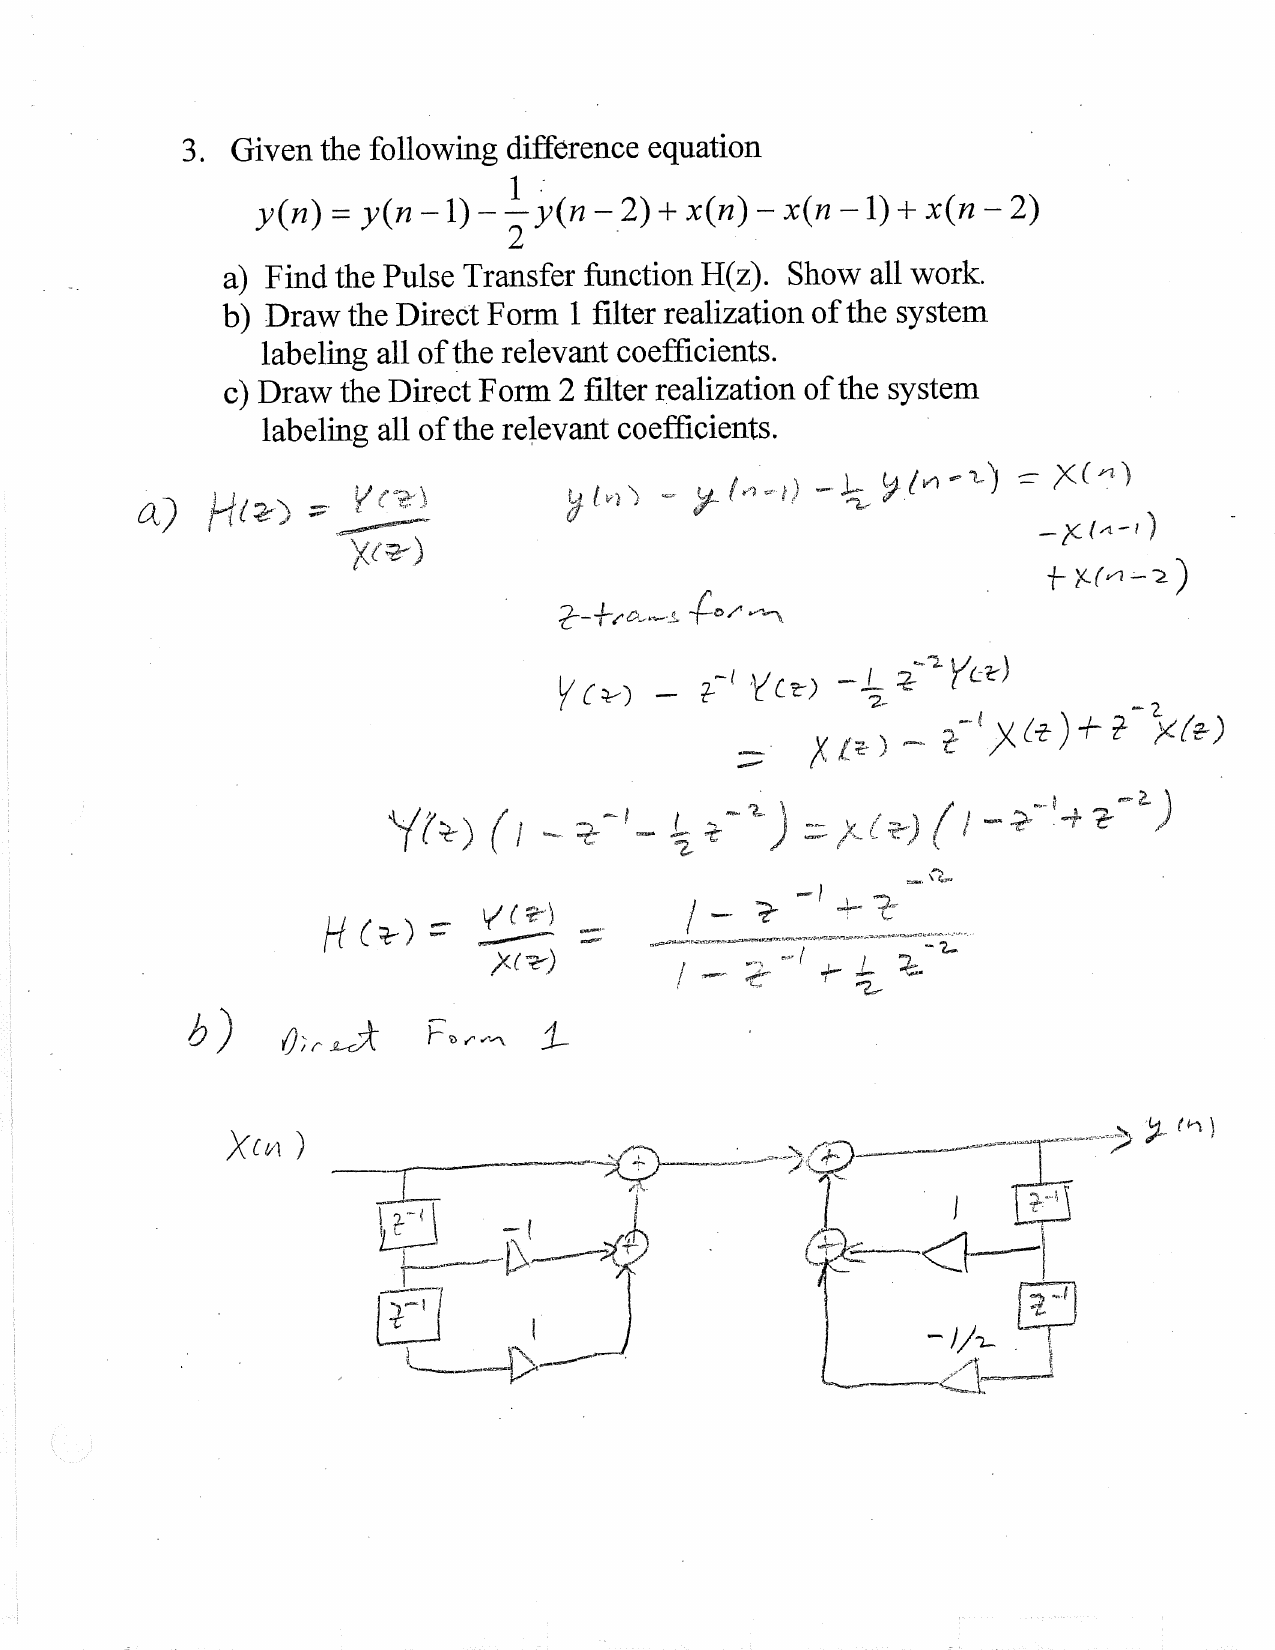 3. Given the following difference equation
y(n) = y(n − 1) − 1/2 y(n − 2) + x(n) − x(n − 1) + x(n − 2)
a) Find the Pulse Transfer function H(z). Show all work.
b) Draw the Direct Form 1 filter realization of the system
labeling all of the relevant coefficients.
c) Draw the Direct Form 2 filter realization of the system
labeling all of the relevant coefficients.
a) H(z) = Y(z)/X(z)
y(n) − y(n−1) − 1/2 y(n−2) = X(n)
−x(n−1)
+x(n−2)
z-transform
Y(z) − z⁻¹ Y(z) − 1/2 z⁻² Y(z)
= X(z) − z⁻¹ X(z) + z⁻² X(z)
Y(z) (1 − z⁻¹ − 1/2 z⁻²) = X(z) (1 − z⁻¹ + z⁻²)
H(z) = Y(z)/X(z) = (1 − z⁻¹ + z⁻²)/(1 − z⁻¹ + 1/2 z⁻²)
b) Direct Form 1
X(n)
y(n)
+
+
z⁻¹
−1
1
z⁻¹
+
+
z⁻¹
1
−1/2
z⁻¹